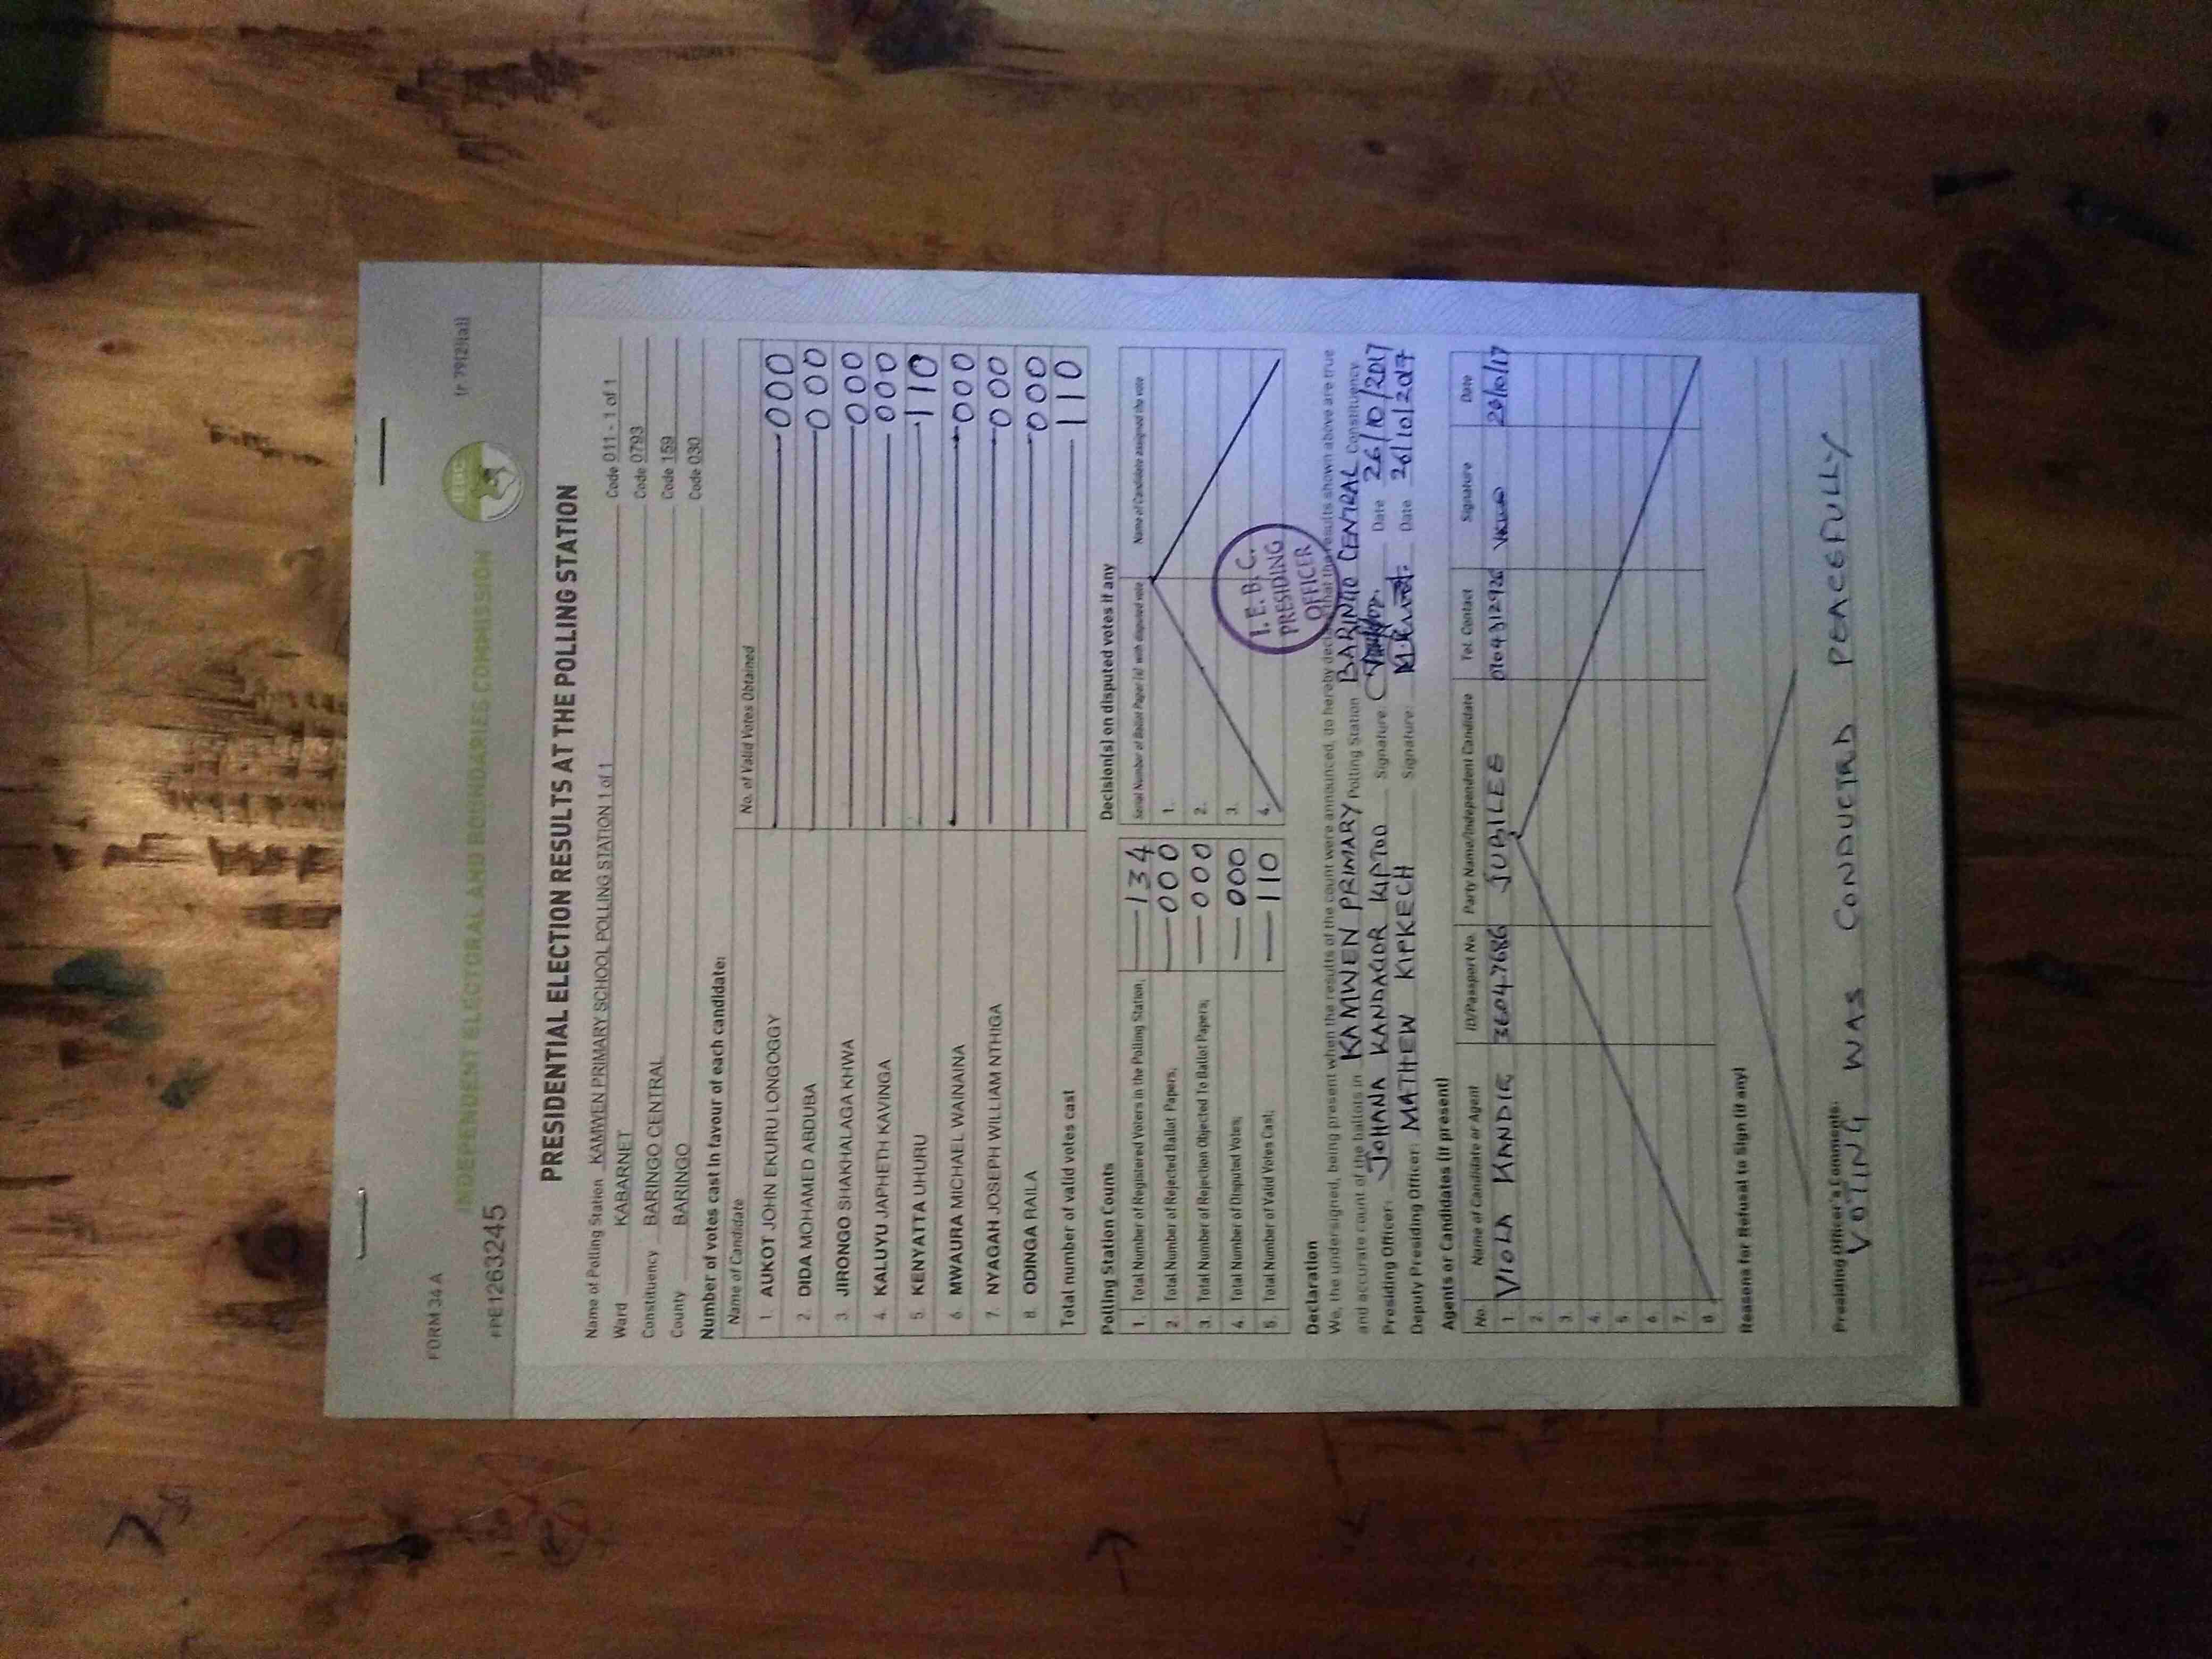 FORM 34A
(r 79(2)(a))
INDEPENDENT ELECTORAL AND BOUNDARIES COMMISSION
IEBC
PRESIDENTIAL ELECTION RESULTS AT THE POLLING STATION
Name of Polling Station KAMWEN PRIMARY SCHOOL POLLING STATION 1 of 1 Code 011 - 1 of 1
Ward KABARNET Code 0793
Constituency BARINGO CENTRAL Code 159
County BARINGO Code 030
Number of votes cast in favour of each candidate:
Name of Candidate No. of Valid Votes Obtained
1. AUKOT JOHN EKURU LONGOGGY 000
2. DIDA MOHAMED ABDUBA 000
3. JIRONGO SHAKHALAGA KHWA 000
4. KALUYU JAPHETH KAVINGA 000
5. KENYATTA UHURU 110
6. MWAURA MICHAEL WAINAINA 000
7. NYAGAH JOSEPH WILLIAM NTHIGA 000
8. ODINGA RAILA 000
Total number of valid votes cast 110
Polling Station Counts
1. Total Number of Registered Voters in the Polling Station; 134
2. Total Number of Rejected Ballot Papers; 000
3. Total Number of Rejection Objected To Ballot Papers; 000
4. Total Number of Disputed Votes; 000
5. Total Number of Valid Votes Cast; 110
Decision(s) on disputed votes if any
Serial Number of Ballot Paper (s) with disputed vote Name of Candidate assigned the vote
1.
2.
3.
4.
I.E.B.C.
PRESIDING
OFFICER
Declaration
We, the undersigned, being present when the results of the count were announced, do hereby declare that the results shown above are true
and accurate count of the ballots in KAMWEN PRIMARY Polling Station BARINGO CENTRAL Constituency
Presiding Officer: JOHANA KANDAGOR KIPTOO Signature: Date 26/10/2017
Deputy Presiding Officer: MATHEW KIPKECH Signature: Date 26/10/2017
Agents or Candidates (if present)
No. Name of Candidate or Agent ID/Passport No. Party Name/Independent Candidate Tel. Contact Signature Date
1. VIOLA KANDIE JUBILEE 26/10/17
2.
3.
4.
5.
6.
7.
8.
Reasons for Refusal to Sign (if any)
Presiding Officer's Comments:
VOTING WAS CONDUCTED PEACEFULLY